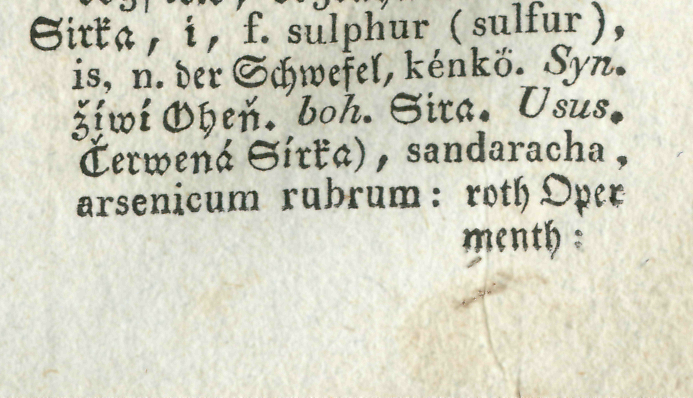 Sirka, i, f. sulphur (sulfur),
is, n. der Schwefel, kénkö. Syn.
žiwí Oheň. boh. Sira. Usus.
Čerwená Sírka), sandaracha,
arsenicum rubrum: roth Oper
menth: